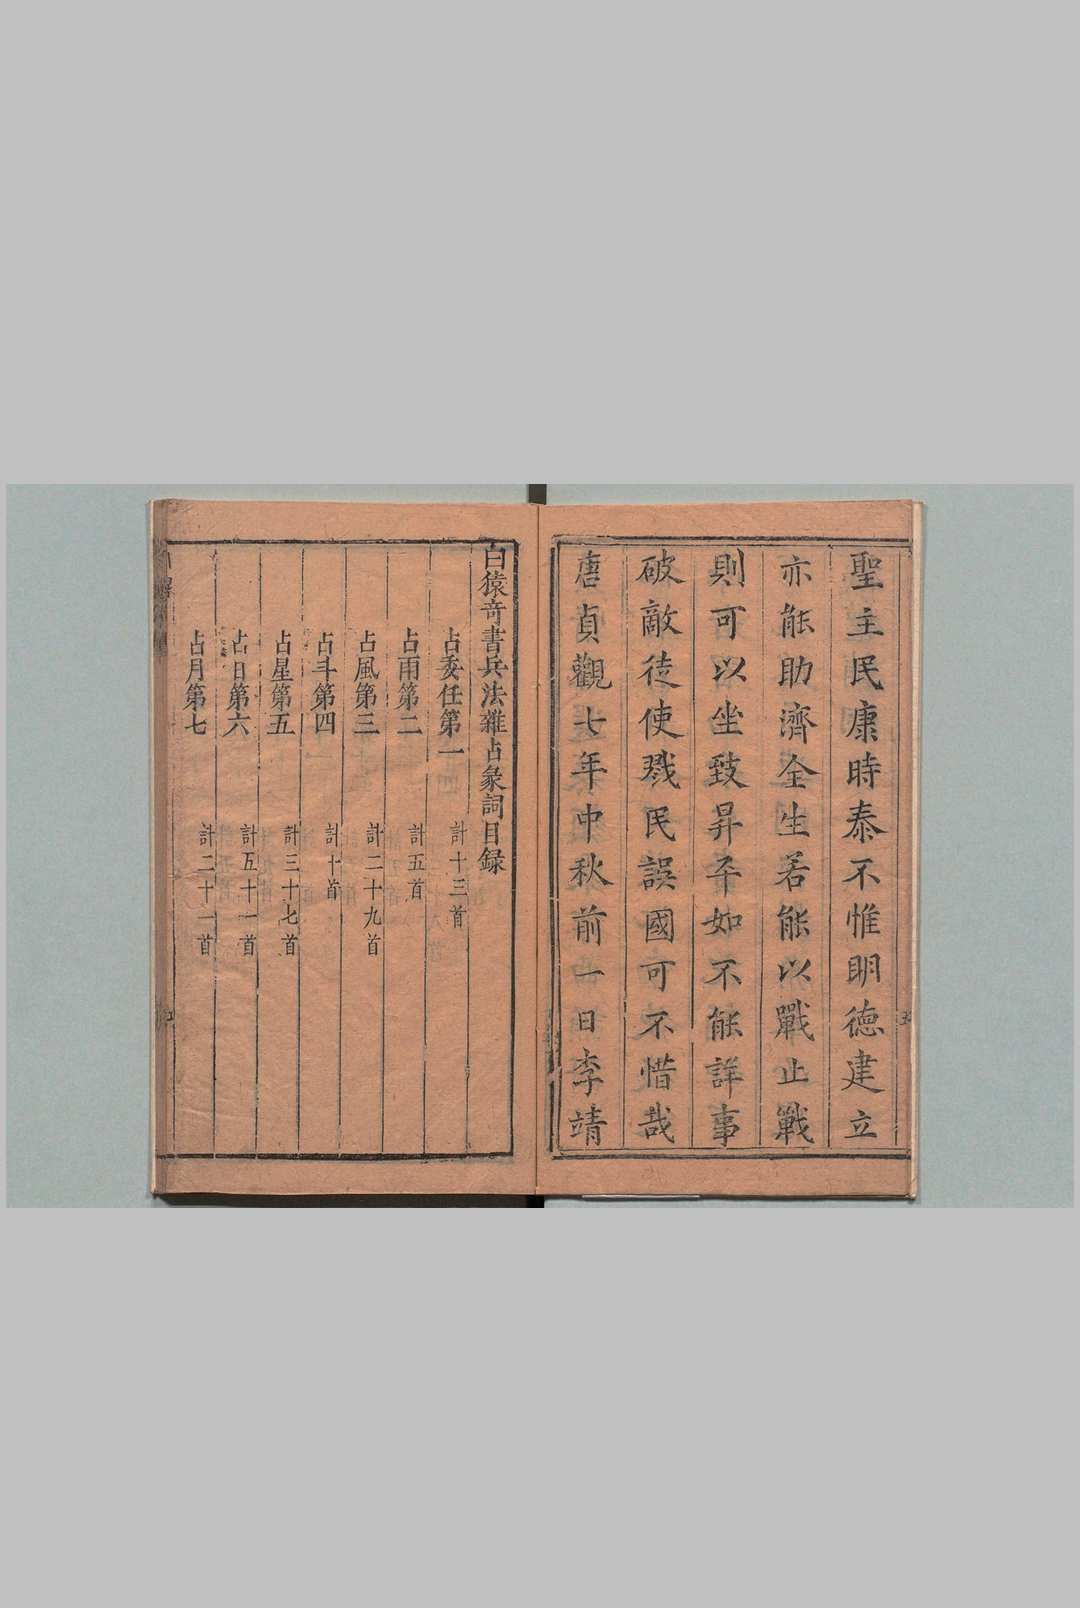 聖主民康時泰不惟明德建立
亦能助濟全生若能以戰止戰
則可以坐致昇平如不能詳事
破敵徒使戮民誤國可不惜哉
唐貞觀七年中秋前一日李靖
白猿奇書兵法雜占彖詞目錄
占委任第一 計十三首
占雨第二 計五首
占風第三 計二十九首
占斗第四 計十首
占星第五 計三十七首
占日第六 計五十一首
占月第七 計二十一首